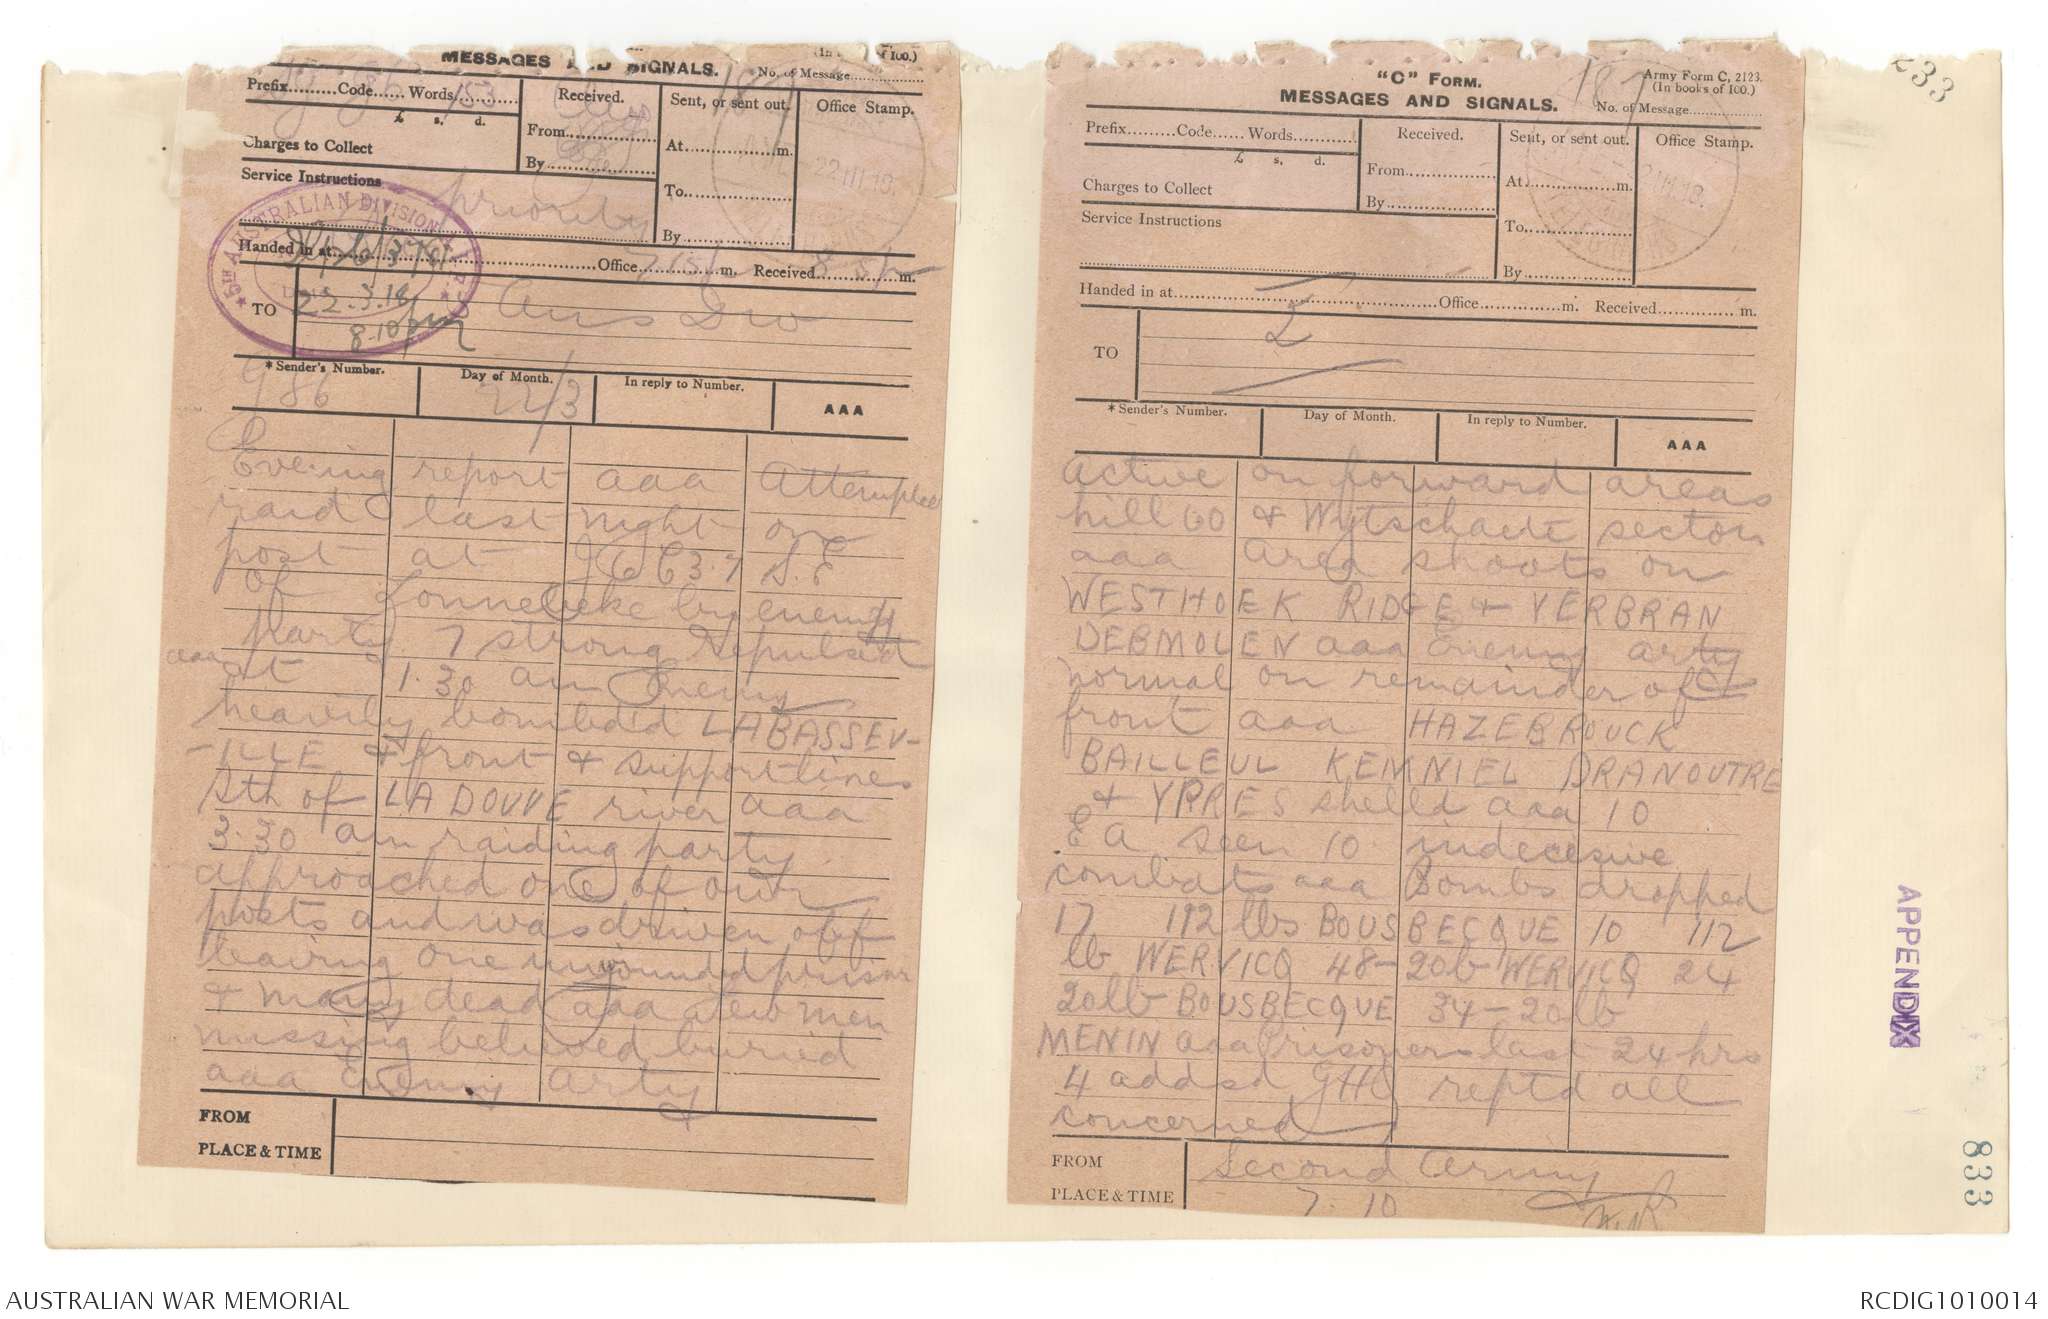 MESSAGES AND SIGNALS.
(In books of 100.)
No. of Message
187
Prefix Code Words 153
£ s. d.
Charges to Collect
Service Instructions
priority
Received.
From
By
Sent, or sent out.
At m.
To
By
Office Stamp.
22 III 18
5TH AUSTRALIAN DIVISION
22.3.18
8.10pm
Handed in at Office 715 m. Received 8.5 m.
TO
5 Aus Div
*Sender's Number.
Day of Month.
In reply to Number.
AAA
G 986
22/3
Evening report aaa Attempted
raid last night on
post at J6C3.7 S.E
of Zonnebeke by enemy
party 7 strong repulsed
aaa at 1.30 am Enemy
heavily bombded LABASSEV-
-ILLE & front & support lines
Sth of LA DOUVE river aaa
3.30 am raiding party
approached one of our
posts and was driven off
leaving one unwounded prisoner
& many dead aaa Few men
missing believed buried
aaa Enemy arty
FROM
PLACE & TIME
"C" FORM.
MESSAGES AND SIGNALS.
Army Form C, 2123.
(In books of 100.)
No. of Message
187
Prefix Code Words
£ s. d.
Charges to Collect
Service Instructions
Received.
From
By
Sent, or sent out.
At m.
To
By
Office Stamp.
Handed in at Office m. Received m.
TO
2
*Sender's Number.
Day of Month.
In reply to Number.
AAA
active on forward areas
hill 60 & Wytschaete sector
aaa area shoots on
WESTHOEK RIDGE & VERBRAN
DEBMOLEN aaa Enemy arty
normal on remainder of
front aaa HAZEBROUCK
BAILLEUL KEMNIEL DRANOUTRE
& YPRES shelld aaa 10
E A seen 10 indecesive
combats aaa Bombs dropped
17 112 lbs BOUSBECQUE 10 112
lb WERVICQ 48-20lb WERVICQ 24
20lb BOUSBECQUE 34-20lb
MENIN aaa Prisoners last 24 hrs
4 addsd GHQ reptd all
concerned
FROM
Second Army
PLACE & TIME
7.10
233
APPENDIX
833
AUSTRALIAN WAR MEMORIAL
RCDIG1010014